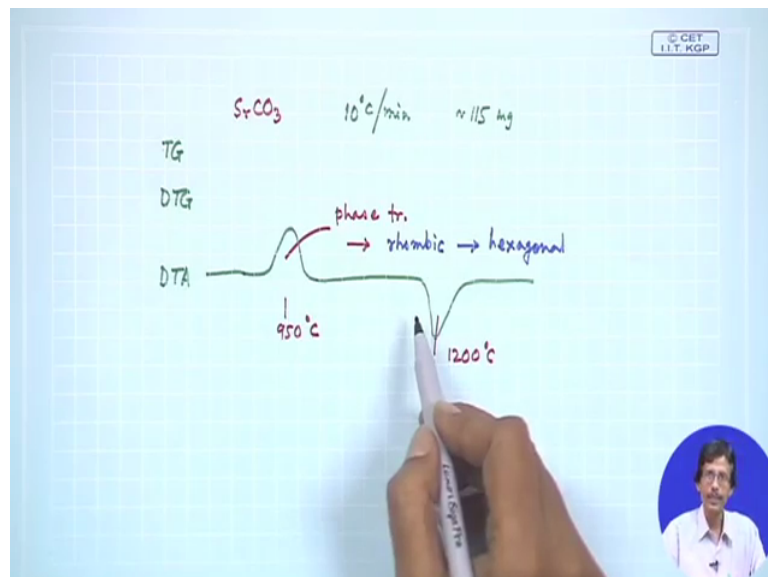 © CET
I.I.T. KGP
SrCO3 10°C/min ~115 mg
TG
DTG
phase tr.
→ rhombic → hexagonal
DTA
950°C
1200°C